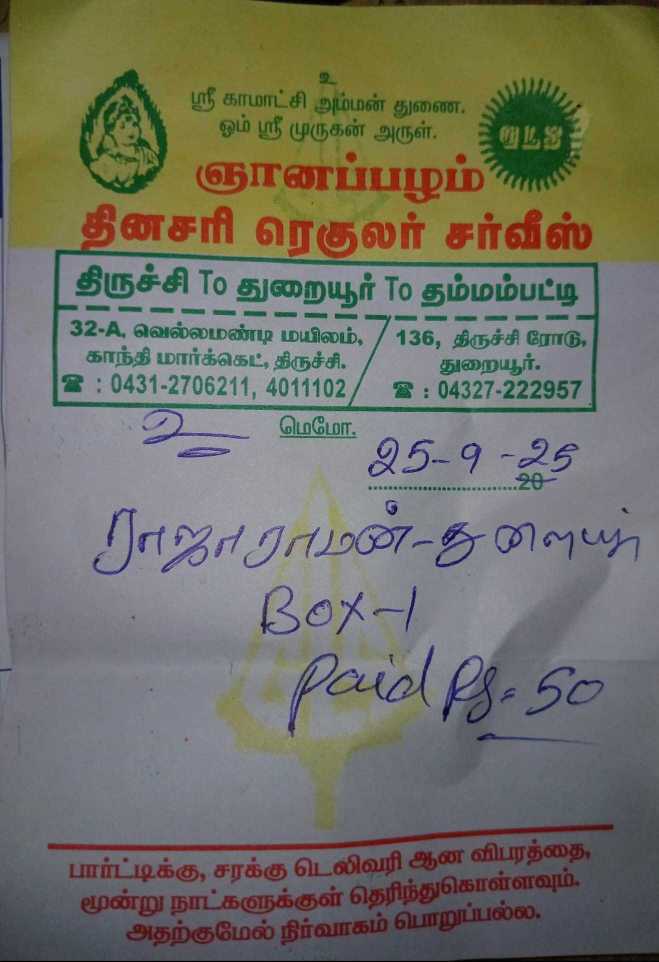 உ
ஸ்ரீ காமாட்சி அம்மன் துணை.
ஓம் ஸ்ரீ முருகன் அருள்.
ஞானப்பழம்
தினசரி ரெகுலர் சர்வீஸ்
திருச்சி To துறையூர் To தம்மம்பட்டி
32-A, வெல்லமண்டி மயிலம்,
காந்தி மார்க்கெட், திருச்சி.
☎ : 0431-2706211, 4011102
136, திருச்சி ரோடு,
துறையூர்.
☎ : 04327-222957
உ
மெமோ.
25-9-25
20
ராஜாராமன்-
BOX-1
Paid Rs. 50
பார்ட்டிக்கு, சரக்கு டெலிவரி ஆன விபரத்தை,
மூன்று நாட்களுக்குள் தெரிந்துகொள்ளவும்.
அதற்குமேல் நிர்வாகம் பொறுப்பல்ல.